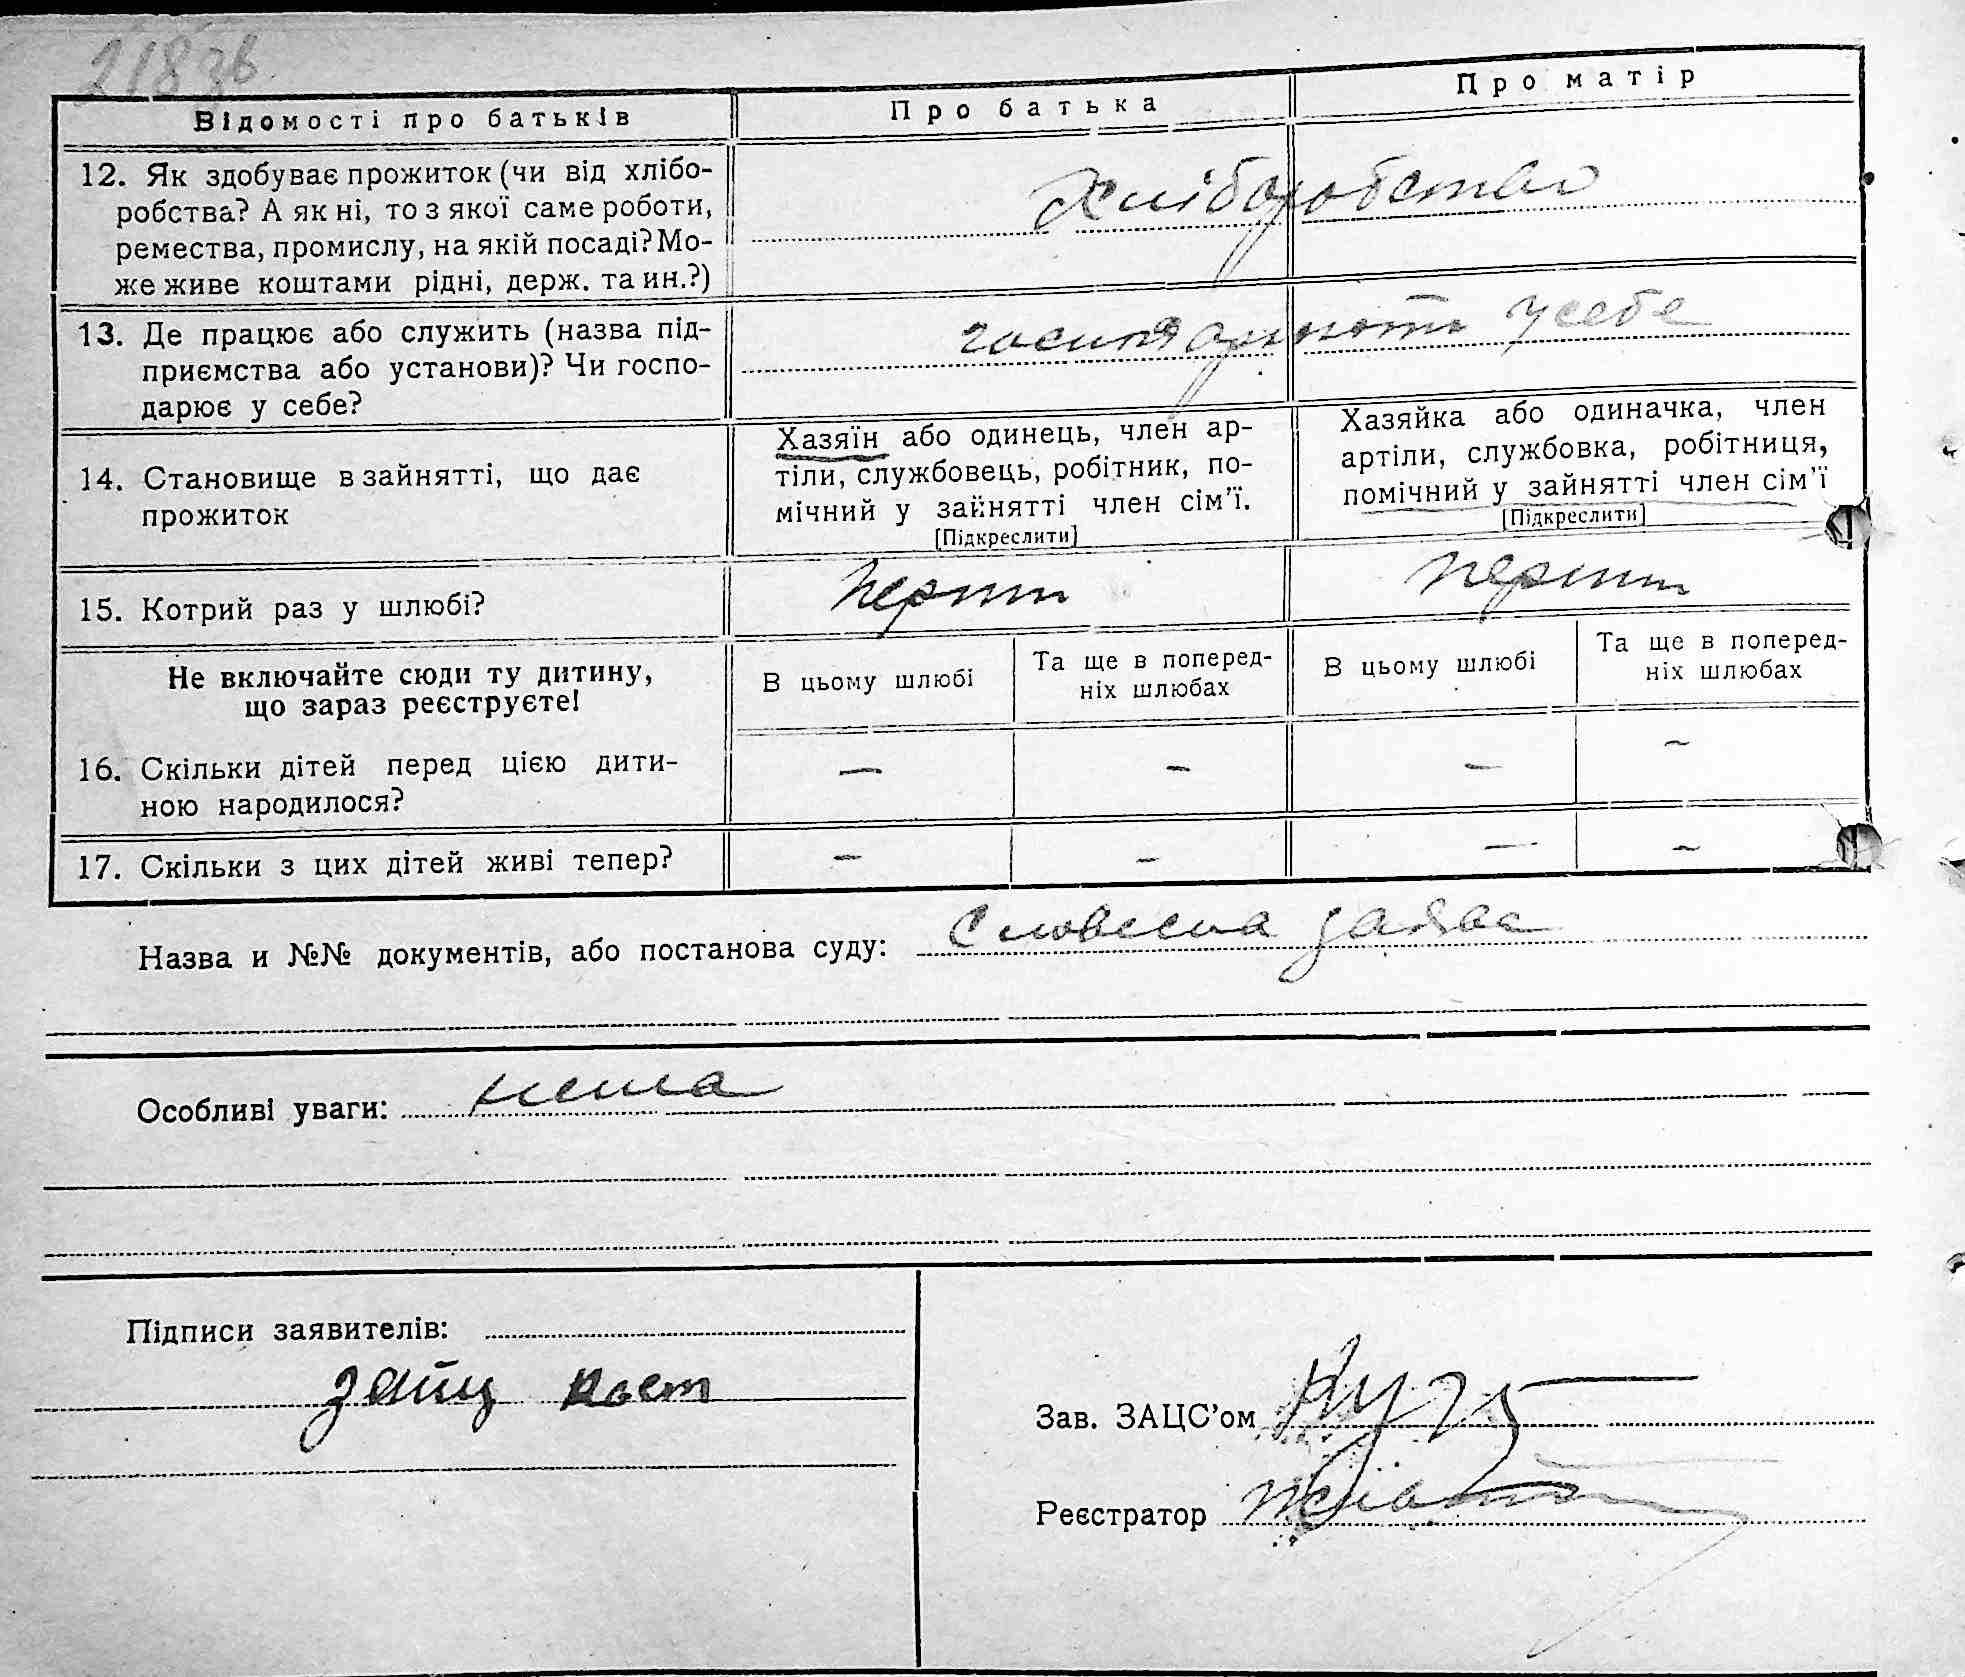 218зв
Відомості про батьків
Про батька
Про матір
12. Як здобуває прожиток (чи від хлібо-
робства? А як ні, то з якої саме роботи,
ремества, промислу, на якій посаді? Мо-
же живе коштами рідні, держ. та ин.?)
Хліборобство
13. Де працює або служить (назва під-
приємства або установи)? Чи госпо-
дарює у себе?
господарюють у себе
14. Становище в зайнятті, що дає
прожиток
Хазяїн або одинець, член ар-
тіли, службовець, робітник, по-
мічний у зайнятті член сім'ї.
[Підкреслити]
Хазяйка або одиначка, член
артіли, службовка, робітниця,
помічний у зайнятті член сім'ї
[Підкреслити]
15. Котрий раз у шлюбі?
Не включайте сюди ту дитину,
що зараз реєструєте!
В цьому шлюбі
Та ще в поперед-
ніх шлюбах
В цьому шлюбі
Та ще в поперед-
ніх шлюбах
16. Скільки дітей перед цією дити-
ною народилося?
— — — —
17. Скільки з цих дітей живі тепер?
— — — —
Назва и №№ документів, або постанова суду: Словесна заява
Особливі уваги: нема
Підписи заявителів:
заяц кост
Зав. ЗАЦС'ом
Реєстратор